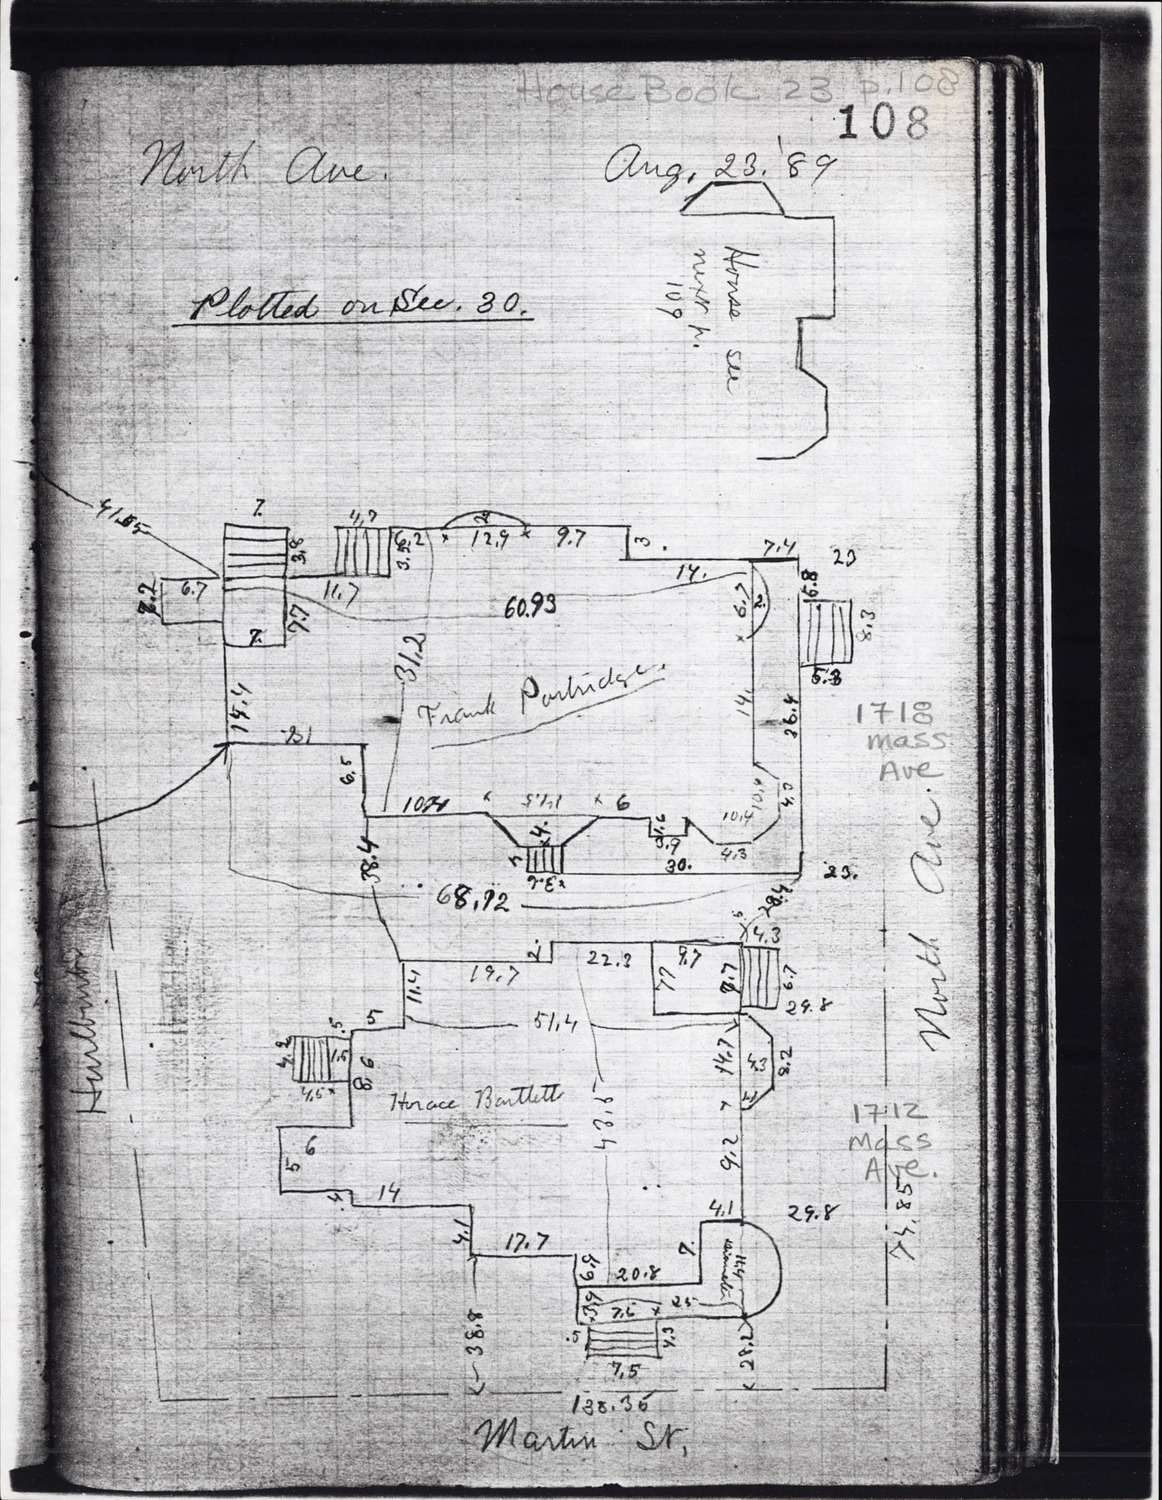 House Book 23 p.108
108
North Ave.
Aug. 23. '89
House see
next p.
109
Plotted on Sec. 30.
41.05
7.
3.8
4.7
6.2
3.2
2
12.9
9.7
3.
7.4
23
14.
6.7
7.7
7.
11.7
60.93
6.7
2.
6.8
8.3
5.3
31.2
14.4
Frank Partridge
14.
36.4
1718
Mass
Ave
6.5
10.4
14.5
6
4.
3.9
10.4
10.4
4.3
30.
3.6
23.
38.4
68.72
28.4
North Ave.
4.3
19.7
2.
22.3
9.7
77
8.7
6.7
29.8
11.4
51.4
5
.5
4.2
1.5
4.5
8.6
14.7
4.3
8.2
Hurlburt
Horace Bartlett
43.5
1712
Mass
Ave.
9.2
6
5
.4
14
4.1
29.8
74.85
4.1
17.7
7.
6.9
20.8
3.9
7.5
25
.5
4.3
7.5
38.8
28.2
138.35
Martin St.